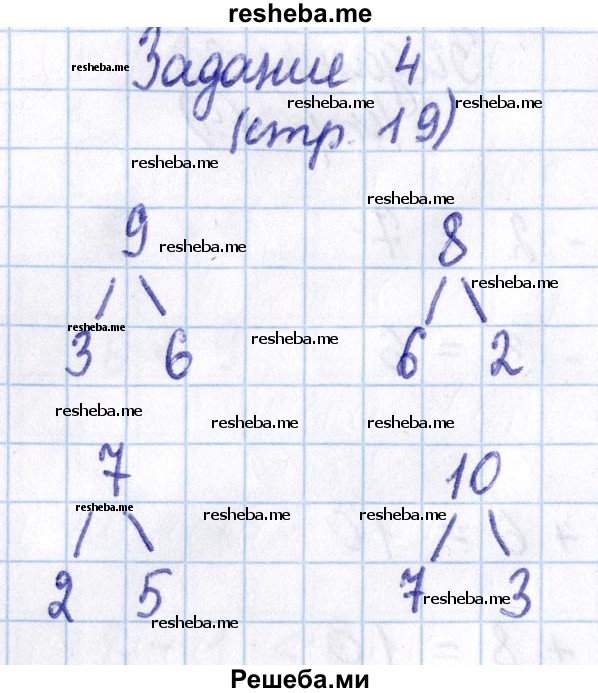 resheba.me
Задание 4
resheba.me
resheba.me resheba.me
(стр. 19)
resheba.me
resheba.me
9 8
resheba.me
resheba.me
resheba.me
resheba.me resheba.me
3 6 6 2
resheba.me
resheba.me resheba.me
7 10
resheba.me
resheba.me resheba.me
2 5 7 3
resheba.me
resheba.me
Решеба.ми